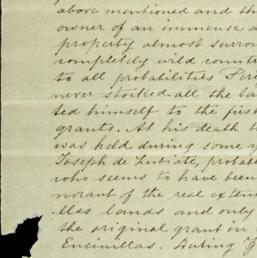 above mentioned and th
owner of an immense
property almost surro
completely wild count
to all probabilities
never stocked all the la
ted himself to the first
grants. At his death
was held during some y
Joseph de Zubiate, probab
who seems to have been
norant of the real exten
llas lands and only
the original grant in
Encinillas. During